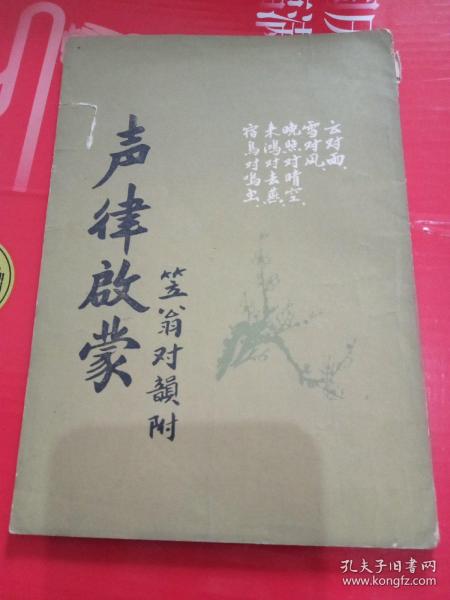 云对雨、
雪对风、
晚照对晴空、
来鸿对去燕、
宿鸟对鸣虫、
声律啟蒙
笠翁对韻附
孔夫子旧书网
www.kongfz.com